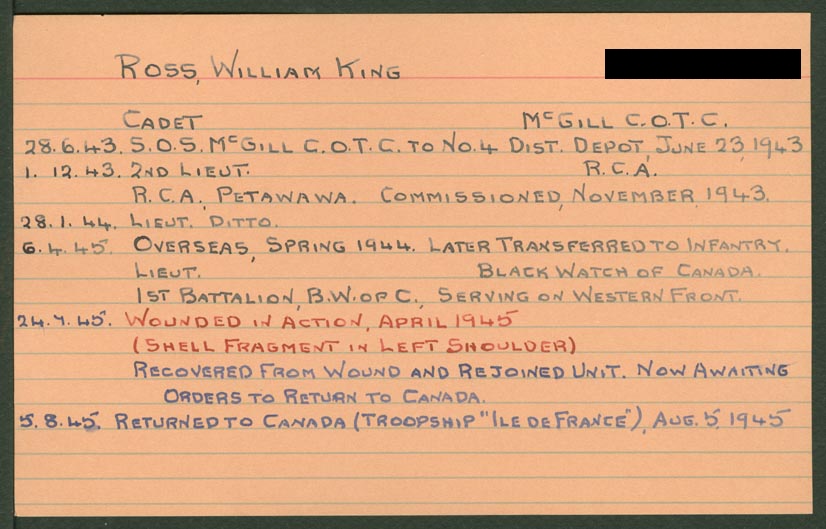 Ross, William King
Cadet McGill C.O.T.C.
28.6.43. S.O.S. McGill C.O.T.C. to No.4 Dist. Depot, June 23, 1943
1. 12.43. 2nd Lieut. R.C.A.
R.C.A., Petawawa. Commissioned, November, 1943.
28.1.44. Lieut. Ditto.
6.4.45. Overseas, Spring 1944. Later Transferred to Infantry.
Lieut. Black Watch of Canada.
1st Battalion, B.W. of C., Serving on Western Front.
24.7.45. Wounded in Action, April 1945
(Shell Fragment in Left Shoulder)
Recovered From Wound and Rejoined Unit. Now Awaiting
Orders to Return to Canada.
5.8.45. Returned to Canada (Troopship "Ile de France"), Aug. 5, 1945